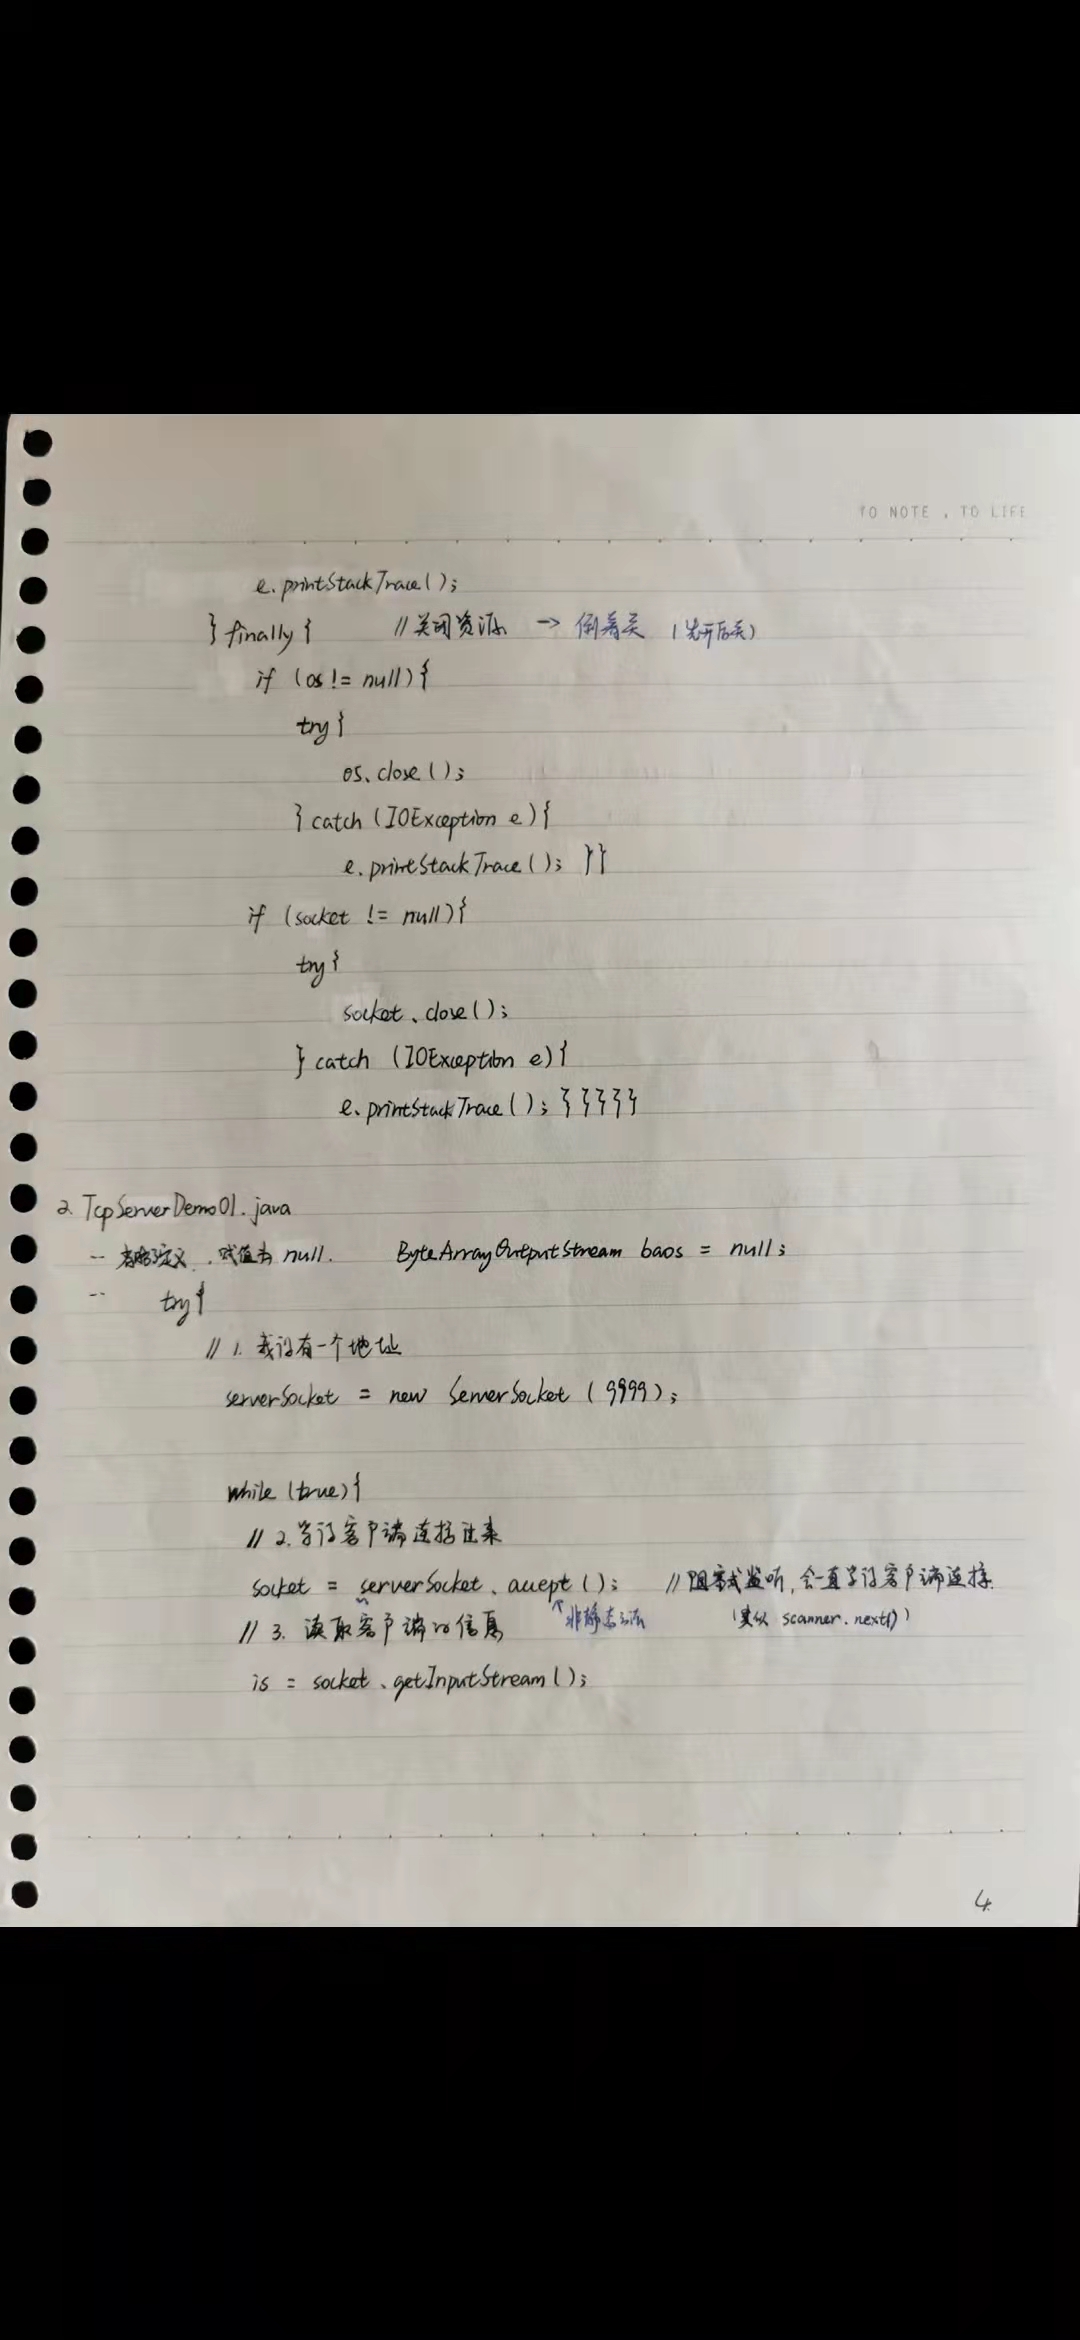 TO NOTE , TO LIFE
e.printStackTrace();
} finally {    // 关闭资源 → 倒着关 (先开后关)
if (os != null) {
try {
os.close();
} catch (IOException e) {
e.printStackTrace(); }}
if (socket != null) {
try {
socket.close();
} catch (IOException e) {
e.printStackTrace(); }}}}}
2. TcpServerDemo01.java
-- 定义, 赋值为 null.    ByteArrayOutputStream baos = null;
-- try {
// 1. 我得有一个地址
serverSocket = new ServerSocket (9999);
while (true) {
// 2. 等待客户端连接过来
socket = serverSocket.accept();    // 阻塞式监听, 会一直等待客户端连接.
↑非静态方法    (类似 scanner.next())
// 3. 读取客户端的信息
is = socket.getInputStream();
4